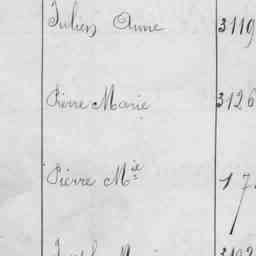 Julien Anne 3119
Pierre Marie 3126
Pierre M.ie 17